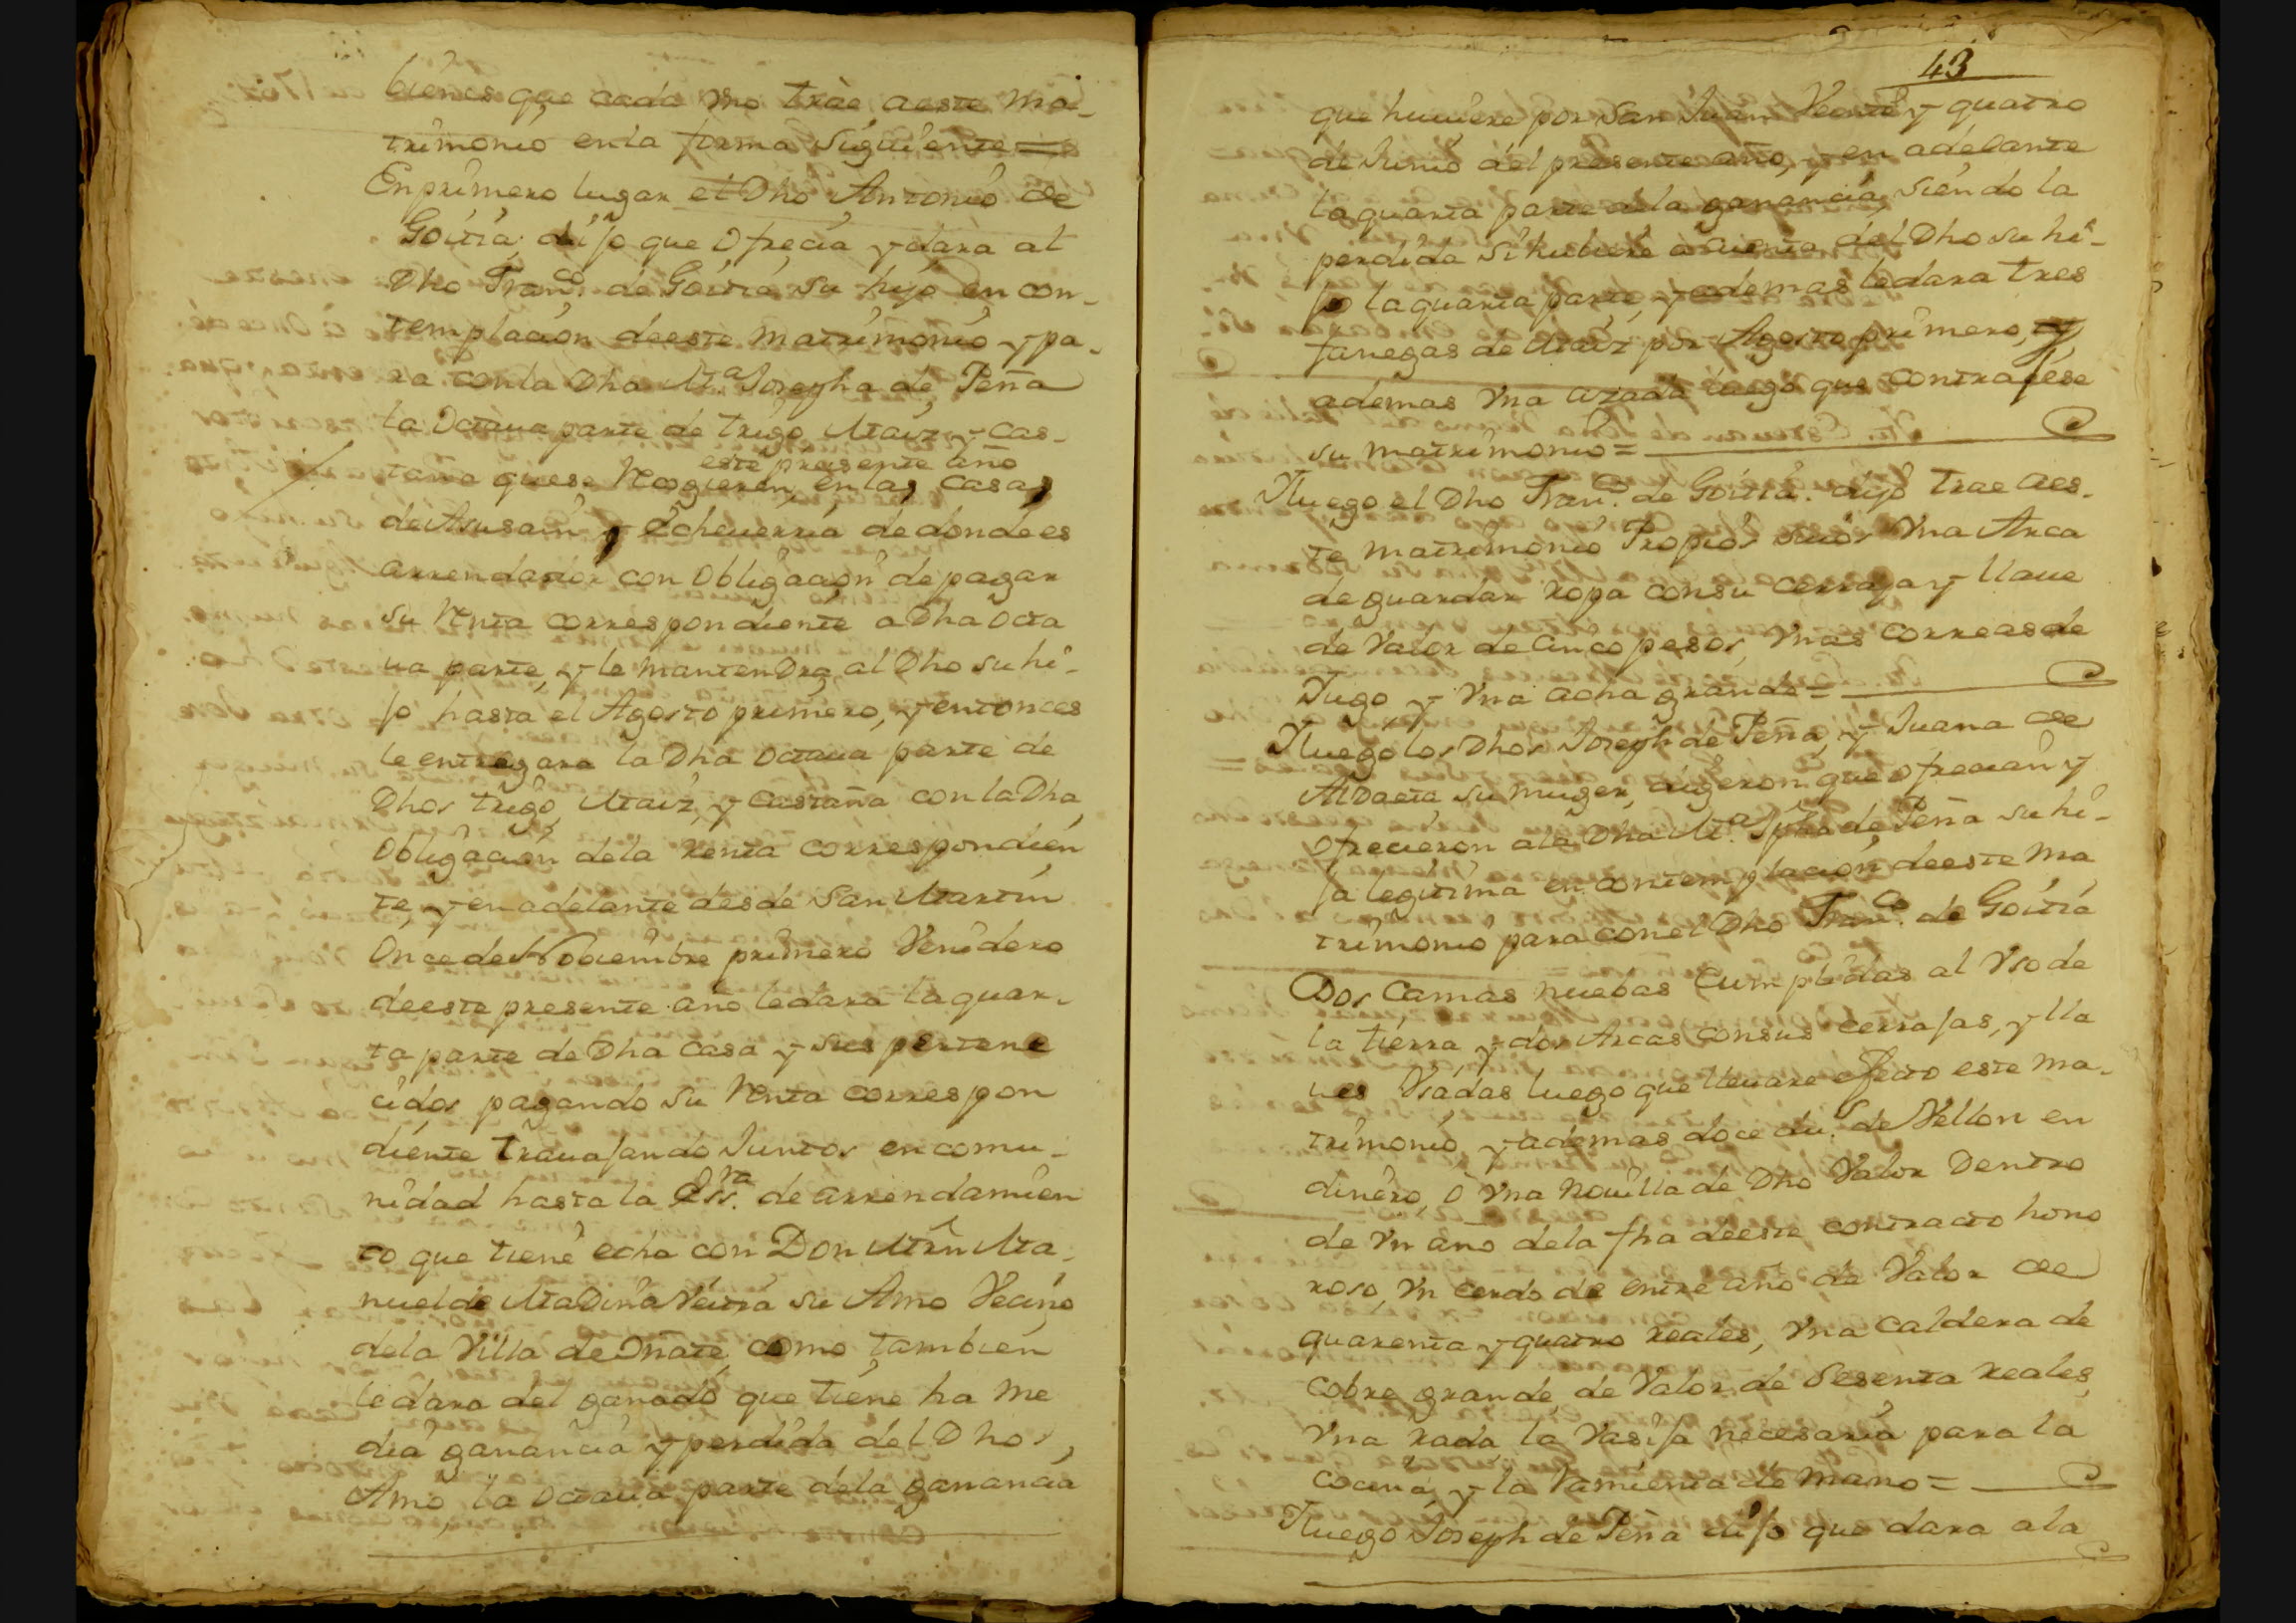 bienes que cada vno tràe aeste ma-
trimonio enla forma siguiente =
En primero lugar el Dho Antonio de
Goitia; dijo que Ofrecia y dara al
Dho Franco. de Goitia su hijo en con-
templacion deeste matrimonio y pa-
ra conla Dha Ma. Josepha de Peña
la Octaua parte de trigo Maiz y Cas-
este presente año
taña quese Recogieren, enlas Casas
de Asusain y Echeuerria de dondees
arrendador con Obligacion de pagar
su Renta correspondiente a Dha Octa
ua parte, y le mantenDra al Dho su hi-
jo hasta el Agosto primero, y entonces
le entregara la Dha Octaua parte de
Dhos trigo, Maiz, y Castaña con la Dha
Obligacion dela renta correspondien
te, y en adelante desde San Martin
Once de Nobiembre primero Venidero
deeste presente año ledara la quar-
ta parte de Dha Casa y sus pertene
cidos pagando su Renta correspon
diente trauajando Juntos en comu-
nidad hasta la Essra. de arrendamien
to que tiene echa con Don Mrn Ma-
nuel de MaDinaVeitia su Amo Vecino
dela Villa de Oñate, como tambien
le dara del ganado que tiene ha me
dia ganancia y perdida del Dho,
Amo, la Octaua parte dela ganancia
43
que huuiere por San Juan Veinte y quatro
de Junio del presente año, y en adelante
la quarta parte dela ganancia, siendo la
perdida si hubiere a cuenta del Dho su hi-
jo la quarta parte, y ademas ledara tres
fanegas de Maiz por Agosto primero, y
ademas Vna azada luego que contrajese
su matrimonio =
Y luego el Dho Franco. de Goitia. dijo trae aes-
te matrimonio Propios suios Vna Arca
de guardar ropa consu cerraja y llaue
de Valor de cinco pesos, Vnas correas de
Jugo y Vna acha grande =
Y luego los Dhos Joseph de Peña, y Juana de
AlDaeta su muger, digeron que ofrecian y
ofrecieron ala Dha Ma. Jpha de Peña su hi-
ja legitima en contemplacion deeste ma
trimonio para conel Dho Franco. de Goitia
Dos Camas nuebas Cumplidas al Vso de
la tierra y dos Arcas consus cerrajas, y lla
ues Vsadas luego que lleuare efecto este ma-
trimonio y ademas doce dus. de Vellon en
dinero, O Vna Nouilla de Dho Valor Dentro
de Vn año dela fha deeste contracto hono
roso, Vn cerdo de entre año de Valor de
quarenta y quatro reales, Vna caldera de
cobre grande, de Valor de Sesenta reales,
Vna rada la Vasija necesaria para la
cocina, y la ramienta de mano =
Y luego Joseph de Peña dijo que dara ala